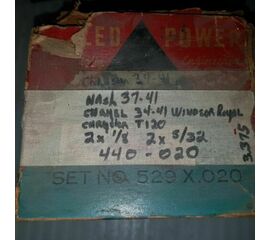 LED POWER
Engineered
Chrysler 34-41
NASH 37-41
34-41 WINDSOR Royal
CHRYSLER T120
2x 1/8 2x 5/32
440-020
3.375
SET NO. 529 X.020